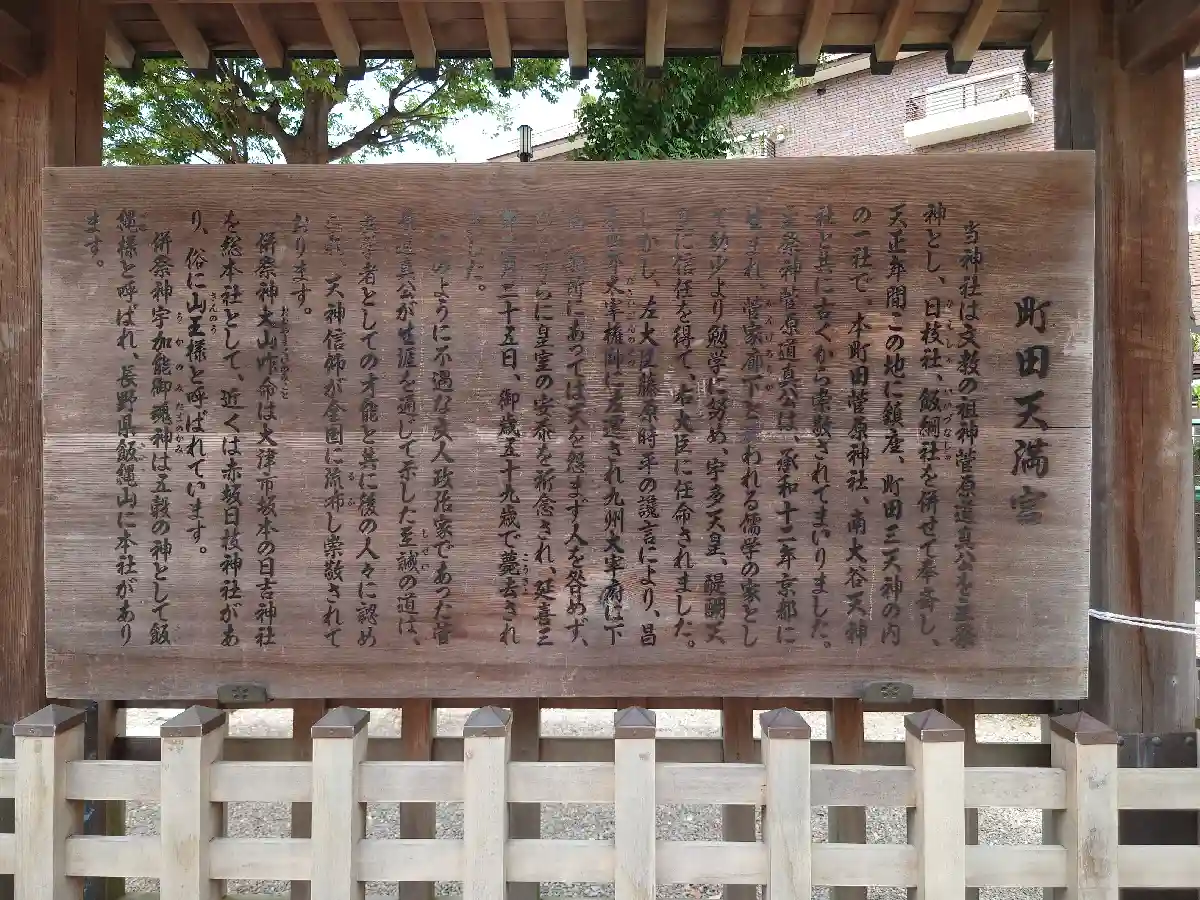 町田天満宮
当神社は文教の祖神菅原道真公を主祭
神とし、日枝社、飯綱社を併せて奉斎し、
天正年間この地に鎮座、町田三天神の内
の一社で、本町田菅原神社、南大谷天神
社と共に古くから崇敬されてまいりました。
主祭神菅原道真公は、承和十二年京都に
生まれ、菅家廊下と云われる儒学の家とし
て幼少より勉学に努め、宇多天皇、醍醐天
皇に信任を得て、右大臣に任命されました。
しかし、左大臣藤原時平の讒言により、昌
泰四年大宰権帥に左遷され九州大宰府に下
り、謫所にあっては天を怨まず人を咎めず、
ひたすらに皇室の安泰を祈念され、延喜三
年二月二十五日、御歳五十九歳で薨去され
ました。
このように不遇な文人政治家であった菅
原道真公が生涯を通して示した至誠の道は、
為学者としての才能と共に後の人々に認め
られ、天神信仰が全国に流布し崇敬されて
おります。
併祭神大山咋命は大津市坂本の日吉神社
を総本社として、近くは赤坂日枝神社があ
り、俗に山王様と呼ばれています。
併祭神宇加能御魂神は五穀の神として飯
縄様と呼ばれ、長野県飯縄山に本社があり
ます。